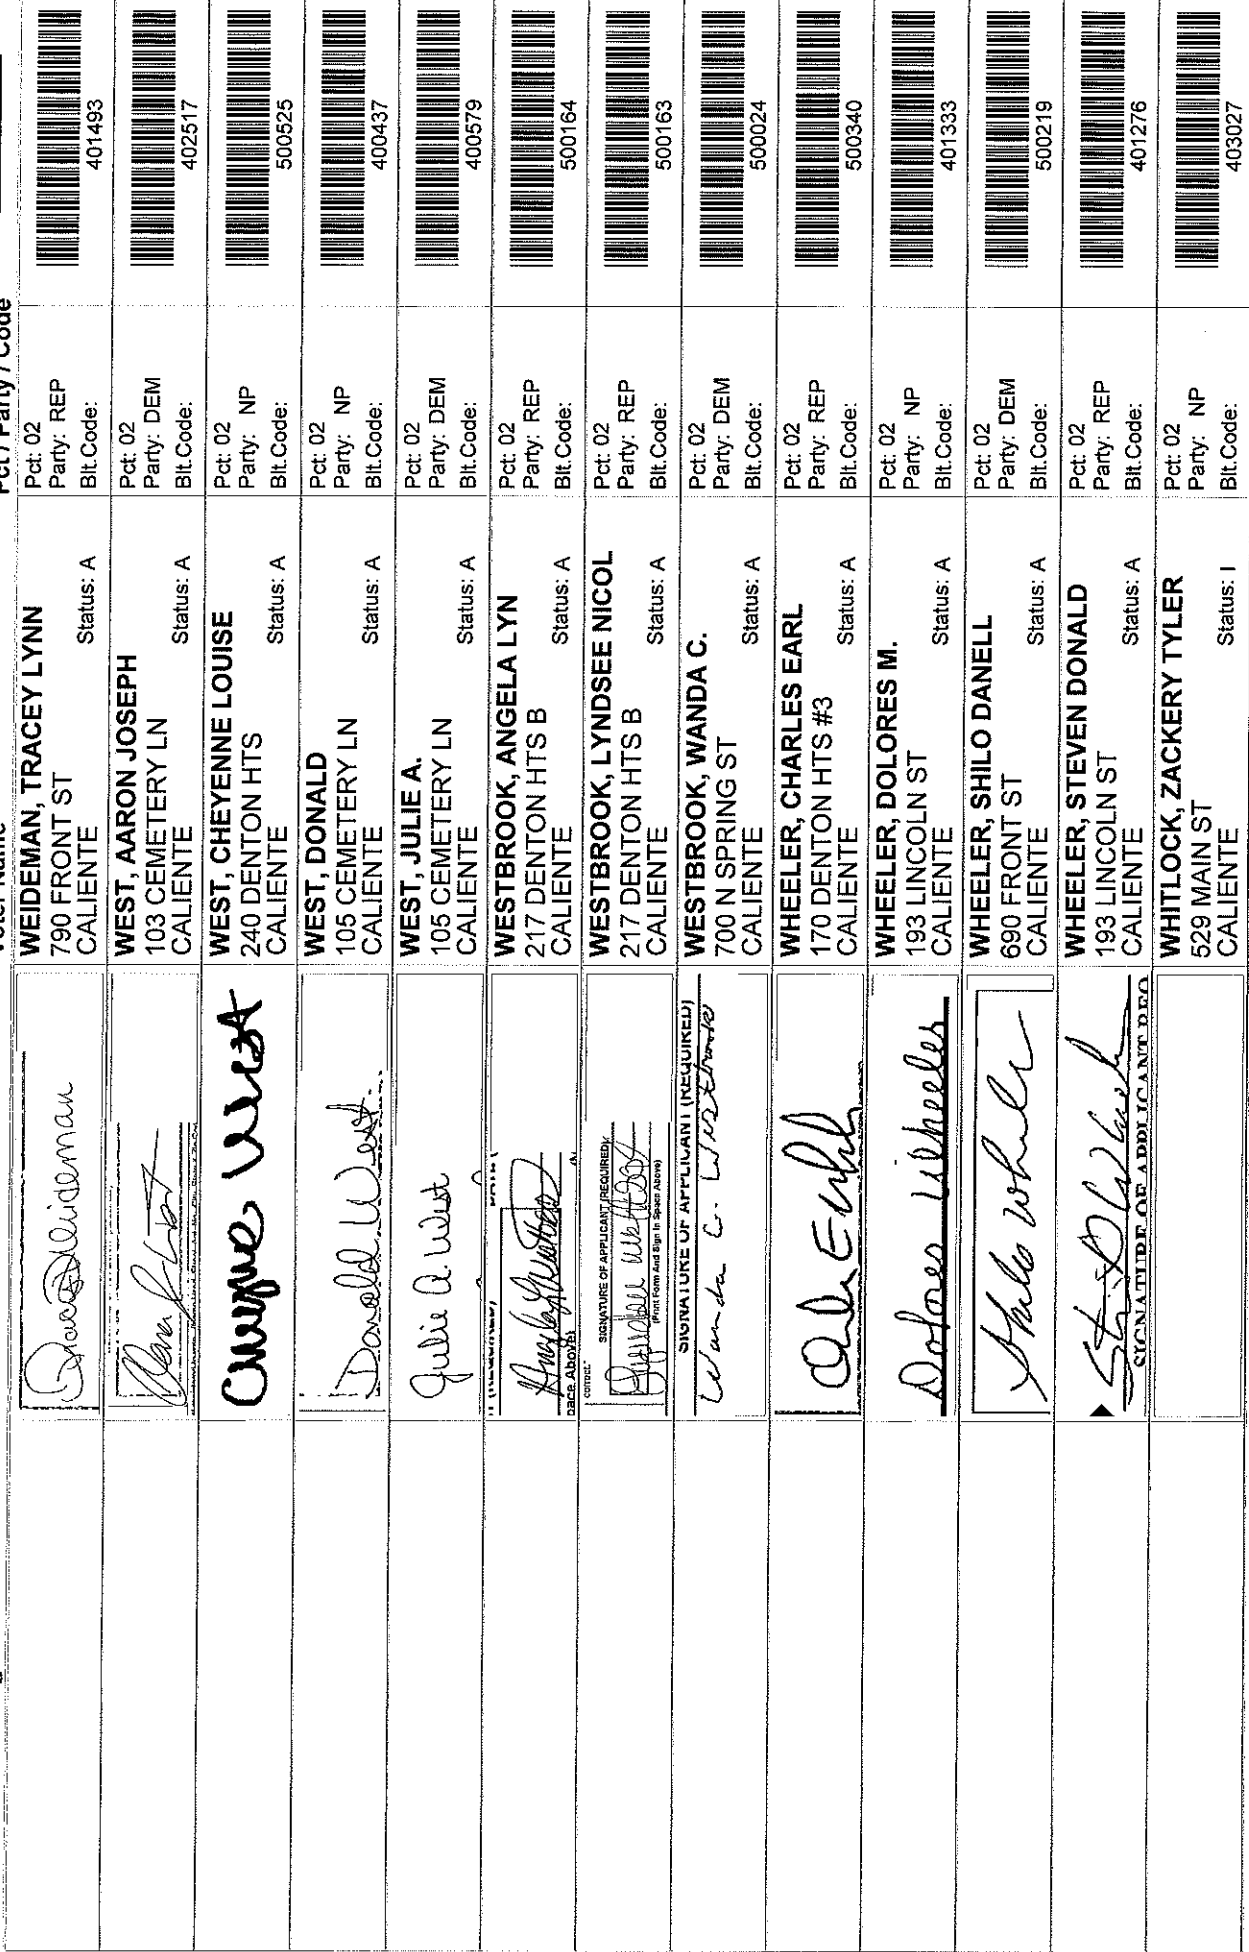 Voter Name
Pct / Party / Code
Tracey L Weideman
WEIDEMAN, TRACEY LYNN
790 FRONT ST
CALIENTE
Status: A
Pct: 02
Party: REP
Blt.Code:
401493
WEST, AARON JOSEPH
103 CEMETERY LN
CALIENTE
Status: A
Pct: 02
Party: DEM
Blt.Code:
402517
WEST, CHEYENNE LOUISE
240 DENTON HTS
CALIENTE
Status: A
Pct: 02
Party: NP
Blt.Code:
500525
Donald West
WEST, DONALD
105 CEMETERY LN
CALIENTE
Status: A
Pct: 02
Party: NP
Blt.Code:
400437
Julie A. West
WEST, JULIE A.
105 CEMETERY LN
CALIENTE
Status: A
Pct: 02
Party: DEM
Blt.Code:
400579
pace Above)
WESTBROOK, ANGELA LYN
217 DENTON HTS B
CALIENTE
Status: A
Pct: 02
Party: REP
Blt.Code:
500164
correct."
SIGNATURE OF APPLICANT (REQUIRED)
(Print Form And Sign In Space Above)
WESTBROOK, LYNDSEE NICOL
217 DENTON HTS B
CALIENTE
Status: A
Pct: 02
Party: REP
Blt.Code:
500163
SIGNATURE OF APPLICANT (REQUIRED)
Wanda C. Westbrook
WESTBROOK, WANDA C.
700 N SPRING ST
CALIENTE
Status: A
Pct: 02
Party: DEM
Blt.Code:
500024
WHEELER, CHARLES EARL
170 DENTON HTS #3
CALIENTE
Status: A
Pct: 02
Party: REP
Blt.Code:
500340
Dolores Wheeler
WHEELER, DOLORES M.
193 LINCOLN ST
CALIENTE
Status: A
Pct: 02
Party: NP
Blt.Code:
401333
Shilo Wheeler
WHEELER, SHILO DANELL
690 FRONT ST
CALIENTE
Status: A
Pct: 02
Party: DEM
Blt.Code:
500219
SIGNATURE OF APPLICANT REQ
WHEELER, STEVEN DONALD
193 LINCOLN ST
CALIENTE
Status: A
Pct: 02
Party: REP
Blt.Code:
401276
WHITLOCK, ZACKERY TYLER
529 MAIN ST
CALIENTE
Status: I
Pct: 02
Party: NP
Blt.Code:
403027